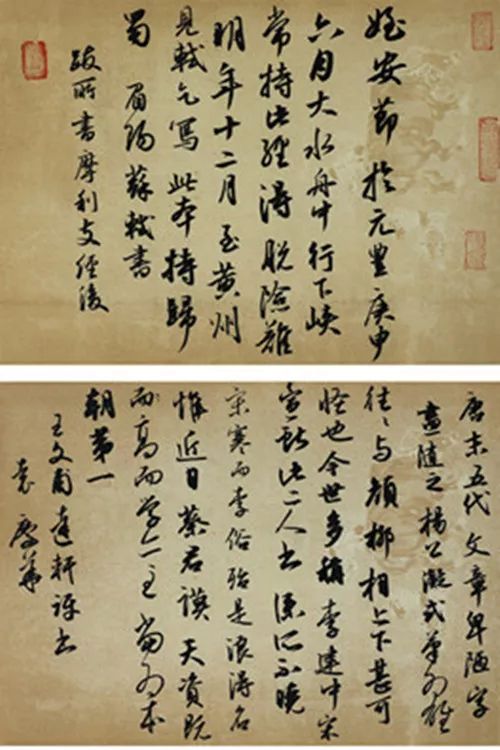 姪安節於元豐庚申
六月大水舟中行下峽
常持此經得脫險難
明年十二月至黃州
見軾乞寫此本持歸
蜀 眉陽蘇軾書
跋所書摩利支經後
唐末五代文章卑陋字
畫隨之楊公凝式筆為雄
往〻與顏柳相上下甚可
怪也今世多稱李建中宋
宣獻此二人書僕所不曉
宋寒而李俗殆是浪得名
惟近日蔡君謨天資既
而高而學亦至當為本
朝第一
王文甫達軒評書